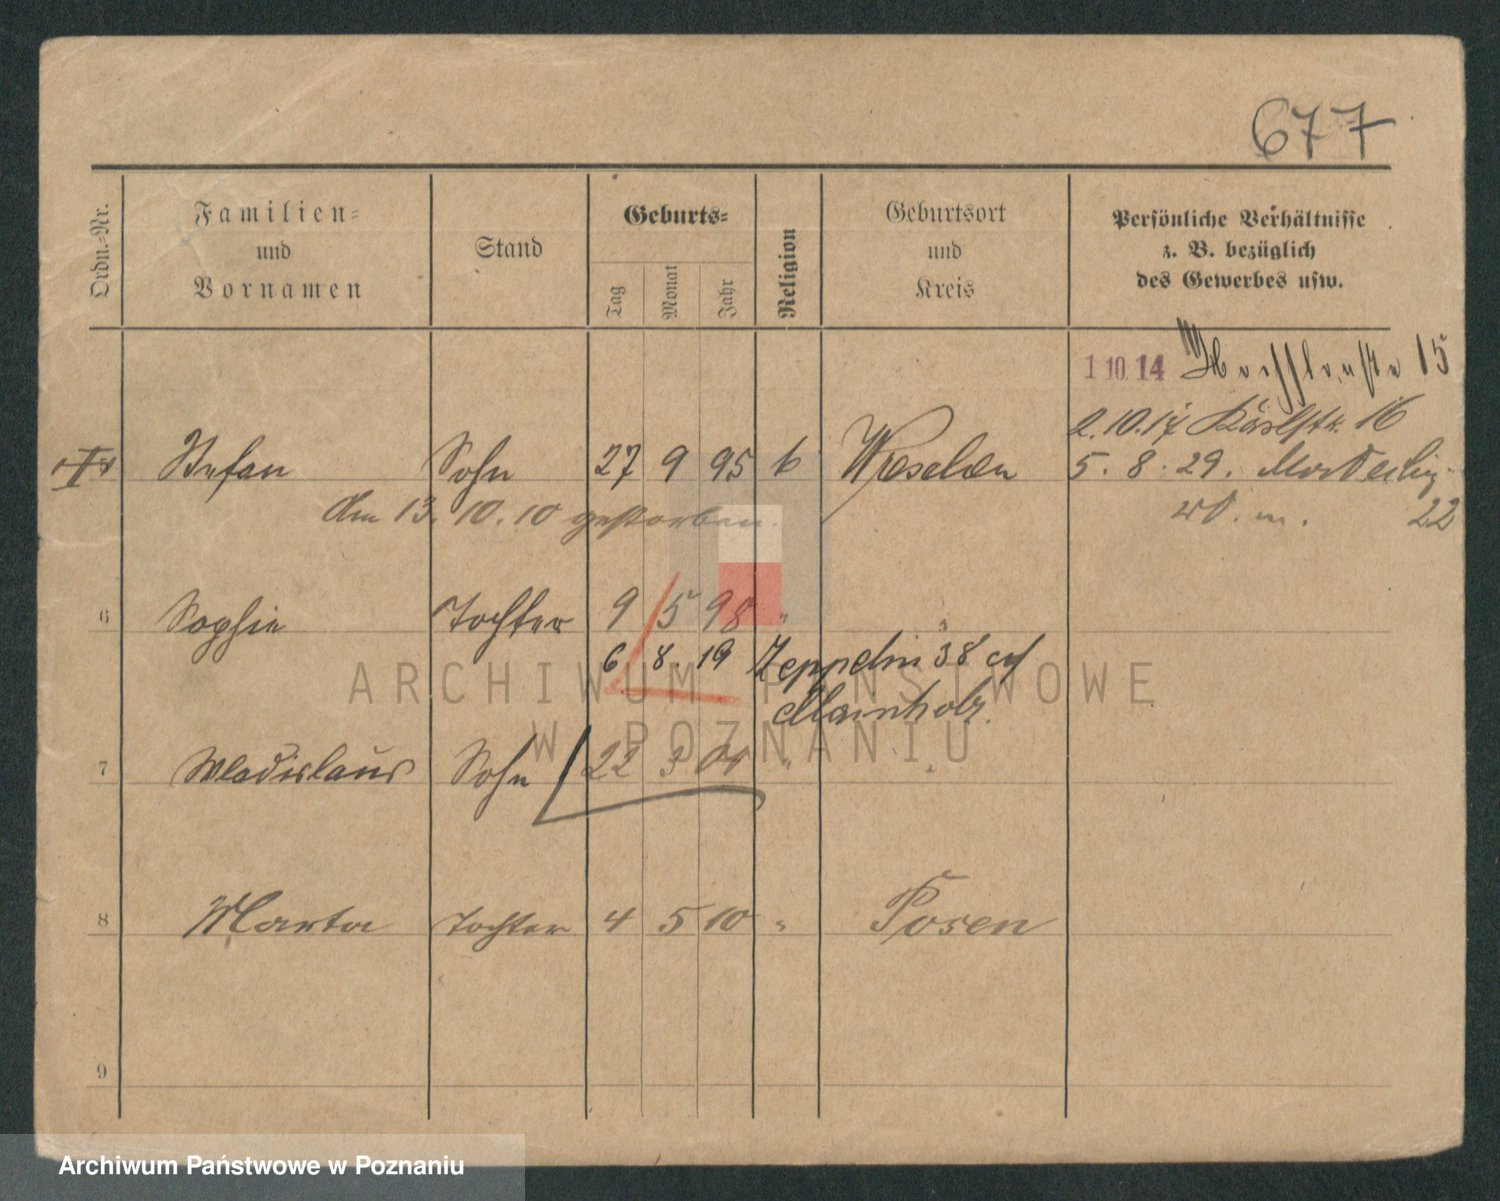 677
Ordn.-Nr.
Familien-
und
Vornamen
Stand
Geburts-
Tag
Monat
Jahr
Religion
Geburtsort
und
Kreis
Persönliche Verhältnisse
z. B. bezüglich
des Gewerbes usw.
1 10. 14 15
2. 10. 17 16
Stefan Sohn 27 9 95 k Wreschen 5. 8. 29.
am 13. 10. 10 gestorben. 22
6 Sophie Tochter 9 5 98 "
6 8. 19 Zeppelin 38 auf
Mainholz.
7 Wladislaus Sohn 22 "
8 Marta Tochter 4 5 10 " Posen
9
ARCHIWUM PAŃSTWOWE
W POZNANIU
Archiwum Państwowe w Poznaniu